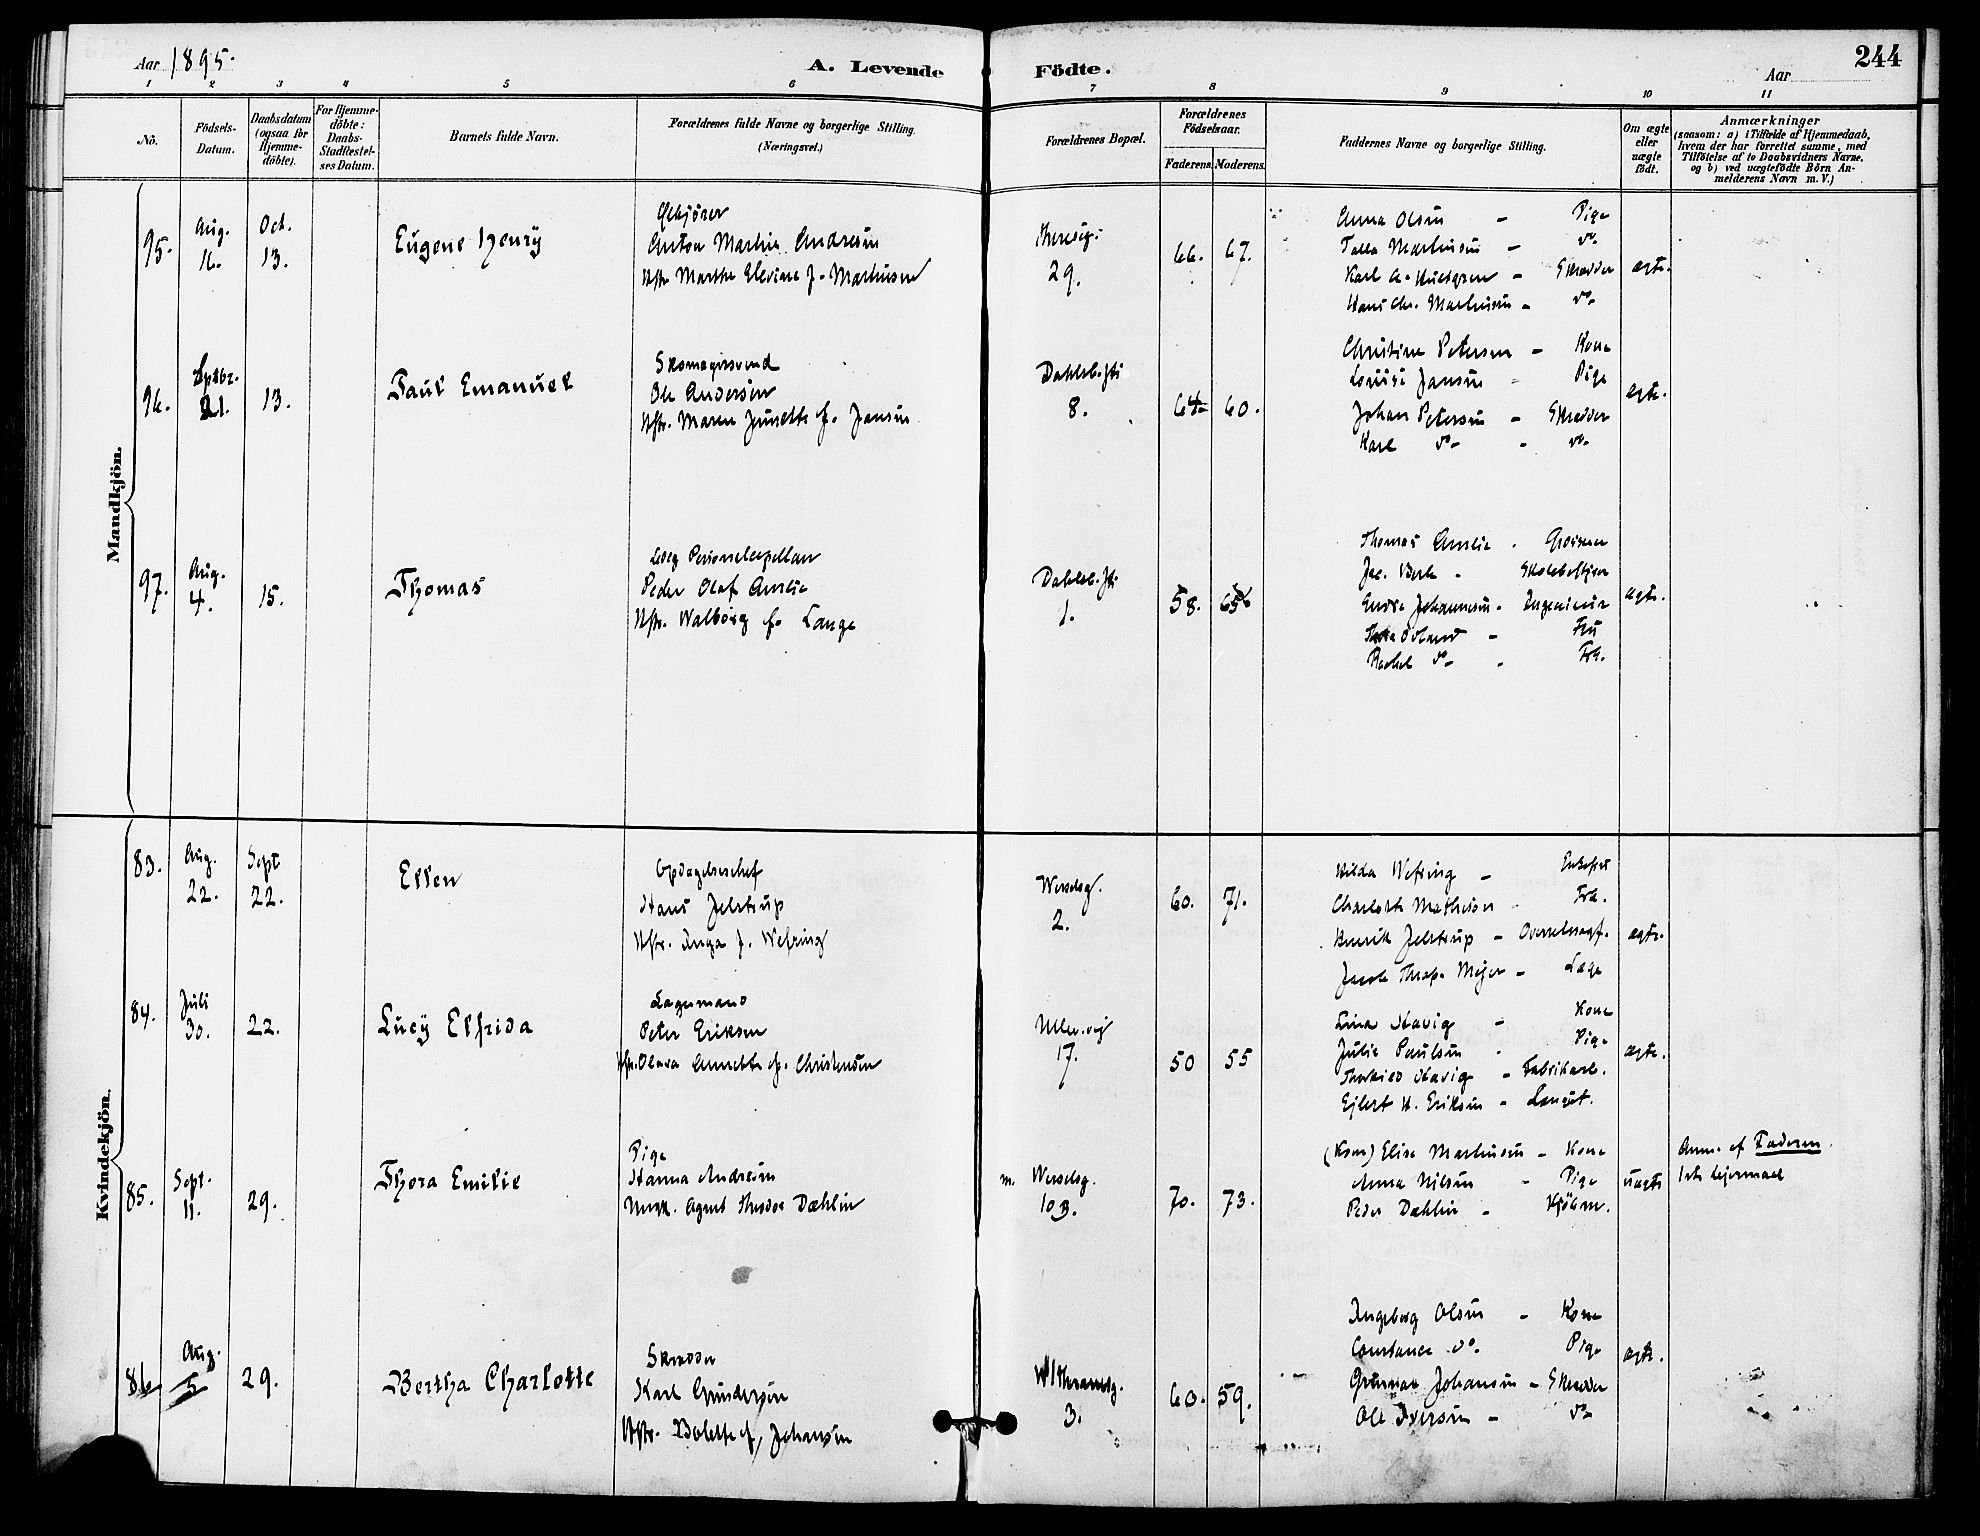 244
Aar 1895.
A. Levende Födte.
Aar
1 2 3 4 5 6 7 8 9 10 11
No.
Födsels-Datum.
Daabsdatum (ogsaa for Hjemme-döbte).
For Hjemme-döbte: Daabs-Stadfæstel-ses Datum.
Barnets fulde Navn.
Forældrenes fulde Navne og borgerlige Stilling.
(Næringsvei.)
Forældrenes Bopæl.
Forældrenes Födselsaar.
Faderens. Moderens.
Faddernes Navne og borgerlige Stilling.
Om ægte eller uægte födt.
Anmærkninger
(saasom: a) i Tilfælde af Hjemmedaab,
hvem der har forrettet samme, med
Tilföielse af to Daabsvidners Navne,
og b) ved uægtefödte Börn An-
melderens Navn m. V.)
Mandkjön.
95.
Aug. 16.
Oct. 13.
Eugene Henry
Anton Martin Andresen
Hstr. Marthe Elevine f. Martinsen
29.
66. 67.
Anna Olsen - Pige
Martinsen - do
Karl - Skrædder
Hans Chr. Martinsen - do
ægte.
96.
Septbr. 21.
13.
Paul Emanuel
Skomagersvend
Ole Andersen
Hstr. Maren Junette f. Jansen
8.
60.
Christine Petersen - Kone
Louise Jansen - Pige
Johan Petersen - Skrædder
Karl do - do
ægte.
97.
Aug. 4.
15.
Thomas
Personelcapellan
Peder Olaf
Hstr. Walborg f. Lange
1.
58.
Thomas
Johannesen - Ingeniør
Fru
Rachel do - Frk.
ægte.
Kvindekjön.
83.
Aug. 22.
Sept 22.
Ellen
Opdagelseschef
Hans Jelstrup
Hstr. Inga f. Wefring
Wesselsg. 2.
60. 71.
Hilda Wefring - Enkefru
Charlotte Mathesen - Frk.
Henrik Jelstrup - Overretssagf.
Jacob Thrap-Meyer - Læge
ægte.
84.
Juli 30.
22.
Lucy Elfrida
Lagermand
Peter Eriksen
Hstr. Olava Annette f. Christensen
Ullev.vej 17.
50 55
Lina Stavig - Kone
Julie Paulsen - Pige
Thorkild Stavig - Fabrikarb.
Ejlert H. Eriksen -
ægte.
85.
Sept. 11.
29.
Thora Emilie
Pige
Hanna Andresen
Agent Theodor Dæhlin
m. Wesselsg. 10B.
70. 73.
(Kom) Elise Martinsen - Kone
Anna Nilsen - Pige
Peder Dæhlin - Kjöbm.
uægte
Anm. af Faderen.
1ste lejermaal
86
Aug. 5
29.
Bertha Charlotte
Skrædder
Karl Gundersen
Hstr. Bolette f. Johansen
3.
60. 59.
Ingeborg Olsen - Kone
Constance do. Pige
Gunnar Johansen - Skrædder
Ole Iversen - do
ægte.